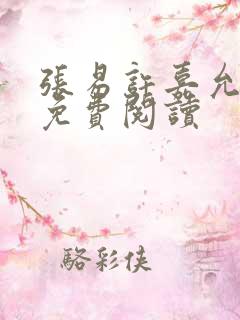 張易許嘉允
免費閱讀
駱彩俠